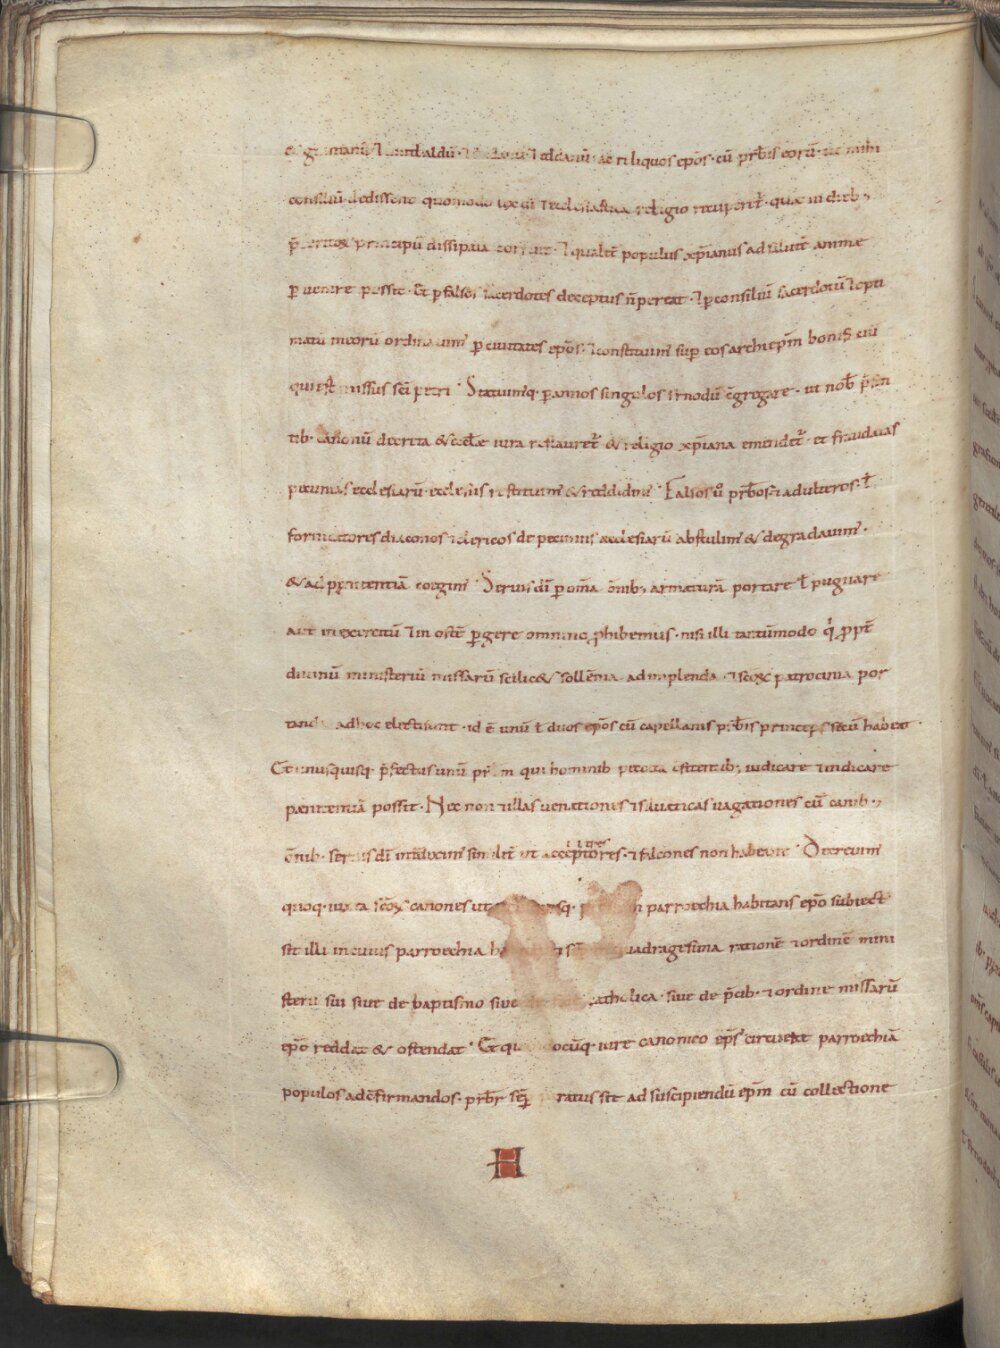 consiliū dedissent quomodo lex dī & ęcclesiastica religio recuperet̄. quę in dieb;
p̄teritoꝝ principū dissipata corruit. ⁊ qualit̄ populus xp̄ianus ad salutē animę
ꝑvenire possit. Et ꝑ falsos sacerdotes deceptus n̄ pereat. ⁊ ꝑ consiliū sacerdotū ⁊ opti
matū meorū ordinavim' ꝑ civitates ep̄os. ⁊ constituim' sup̄ eos archiep̄m bonif̄ ciū
qui est missus sc̄i petri. Statuimq; ꝑ annos singulos sinodū c̄gregare. ut nob̄ p̄sen
tib. canonū decreta & ęccl̄ę iura restauret̄ & religio xp̄iana emendet̄. et fraudatas
pecunias ecclesiarū ecclesiis restituim' & reddidim'. Falsos ů pr̄b̄os. ⁊ adulteros. ł
fornicatores diaconos ⁊ clericos de pecuniis ęcclesiarū abstulim' & degradavim'.
& ad pęnitentiā coegim'. Servis dī ꝑ om̄a ōnib; armaturā portare ł pugnare
aut in exercitū ⁊ in hostē ꝑgere omnino ꝓhibemus. nisi illi tantūmodo q̇ ꝓpt̄
divinū ministeriū missarū scilic& sollēnia adimplenda. ⁊ sc̄oꝝ patrocinia por
tanda ad hoc electi sunt. id ē unū ł duos ep̄os cū capellanis pr̄b̄is princeps secū habeat.
Et unusquisq; p̄fectus unū pr̄b̄m qui hominib peccata c̄fitentib; iudicare ⁊ indicare
pęnitentiā possit. Nec non ⁊ illas venationes ⁊ silvaticas vagationes cū canib.;
ōnib. servis dī int̄diximꝰ similit̄ ut acceptores. ⁊ falcones non habeant. Decrevim'
quoq. iuxta sc̄oꝝ canones ut parroechia habitans ep̄o subiect'
sit illi in cuius parroechia quadragesima rationē ⁊ ordinē mini
sterii sui sive de baptismo sive catholica. sive de p̄cib. ⁊ ordine missarū
ep̄o reddat & ostendat. Et iure canonico ep̄s circuierit parroechiā
populos ad c̄firmandos. pr̄b̄r sēꝑ ratus sit ad suscipiendū ep̄m cū collectione
H